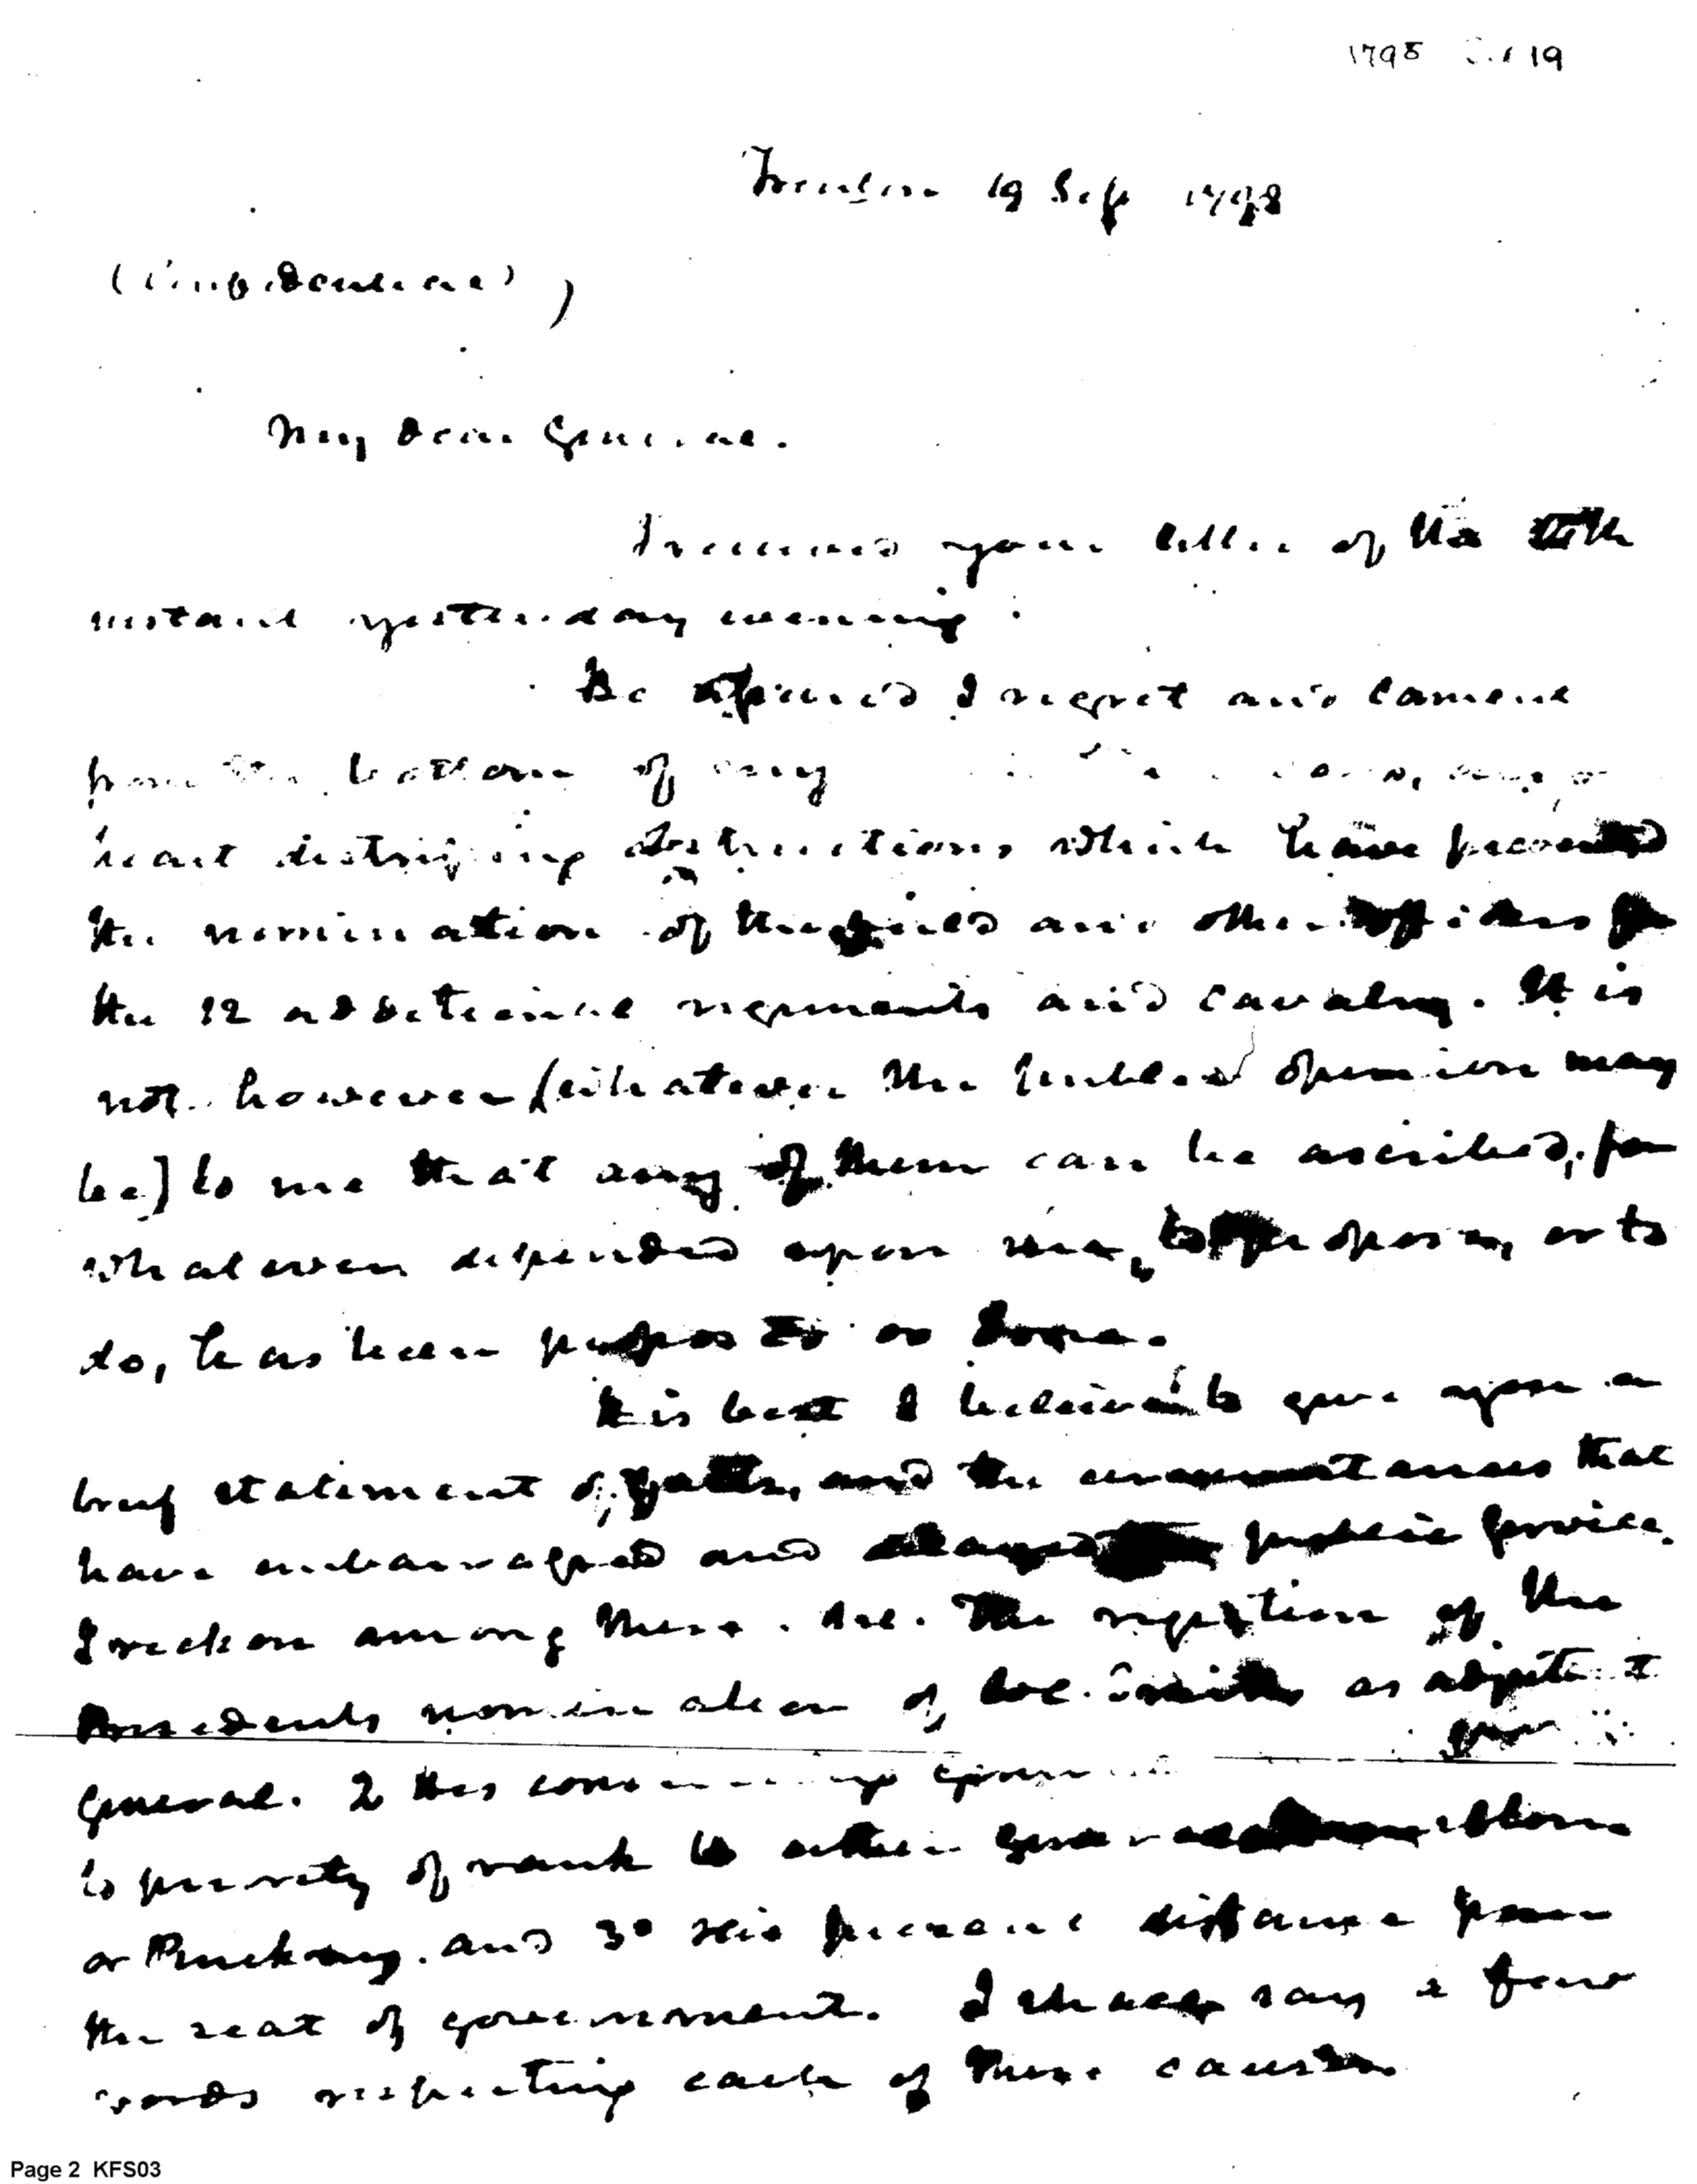 1798 19
Trenton 19 Sep 1798
(Confidential)
My dear General.
I received your letter of the
instant yesterday evening.
Be assured I regret and lament
from the bottom of my
heart distressing obstructions which have prevented
the nomination of the field and other officers for
the 12 additional regiments and cavalry. It is
not however (whatever the public opinion may
be) to me that any of them can be ascribed, for
whatever depended upon me, to propose, or to
do, has been proposed or done.
It is best I believe to give you a
brief statement of facts, and the circumstances that
have embarrassed and public service.
I reckon among these. 1st. The rejection of the
Presidents nomination of Col. Smith as adjutant
general. 2 His
to priority of rank to either General
or Pinckney. and 3º His present distance from
the seat of government. I shall say a few
words respecting each of these causes
Page 2 KFS03